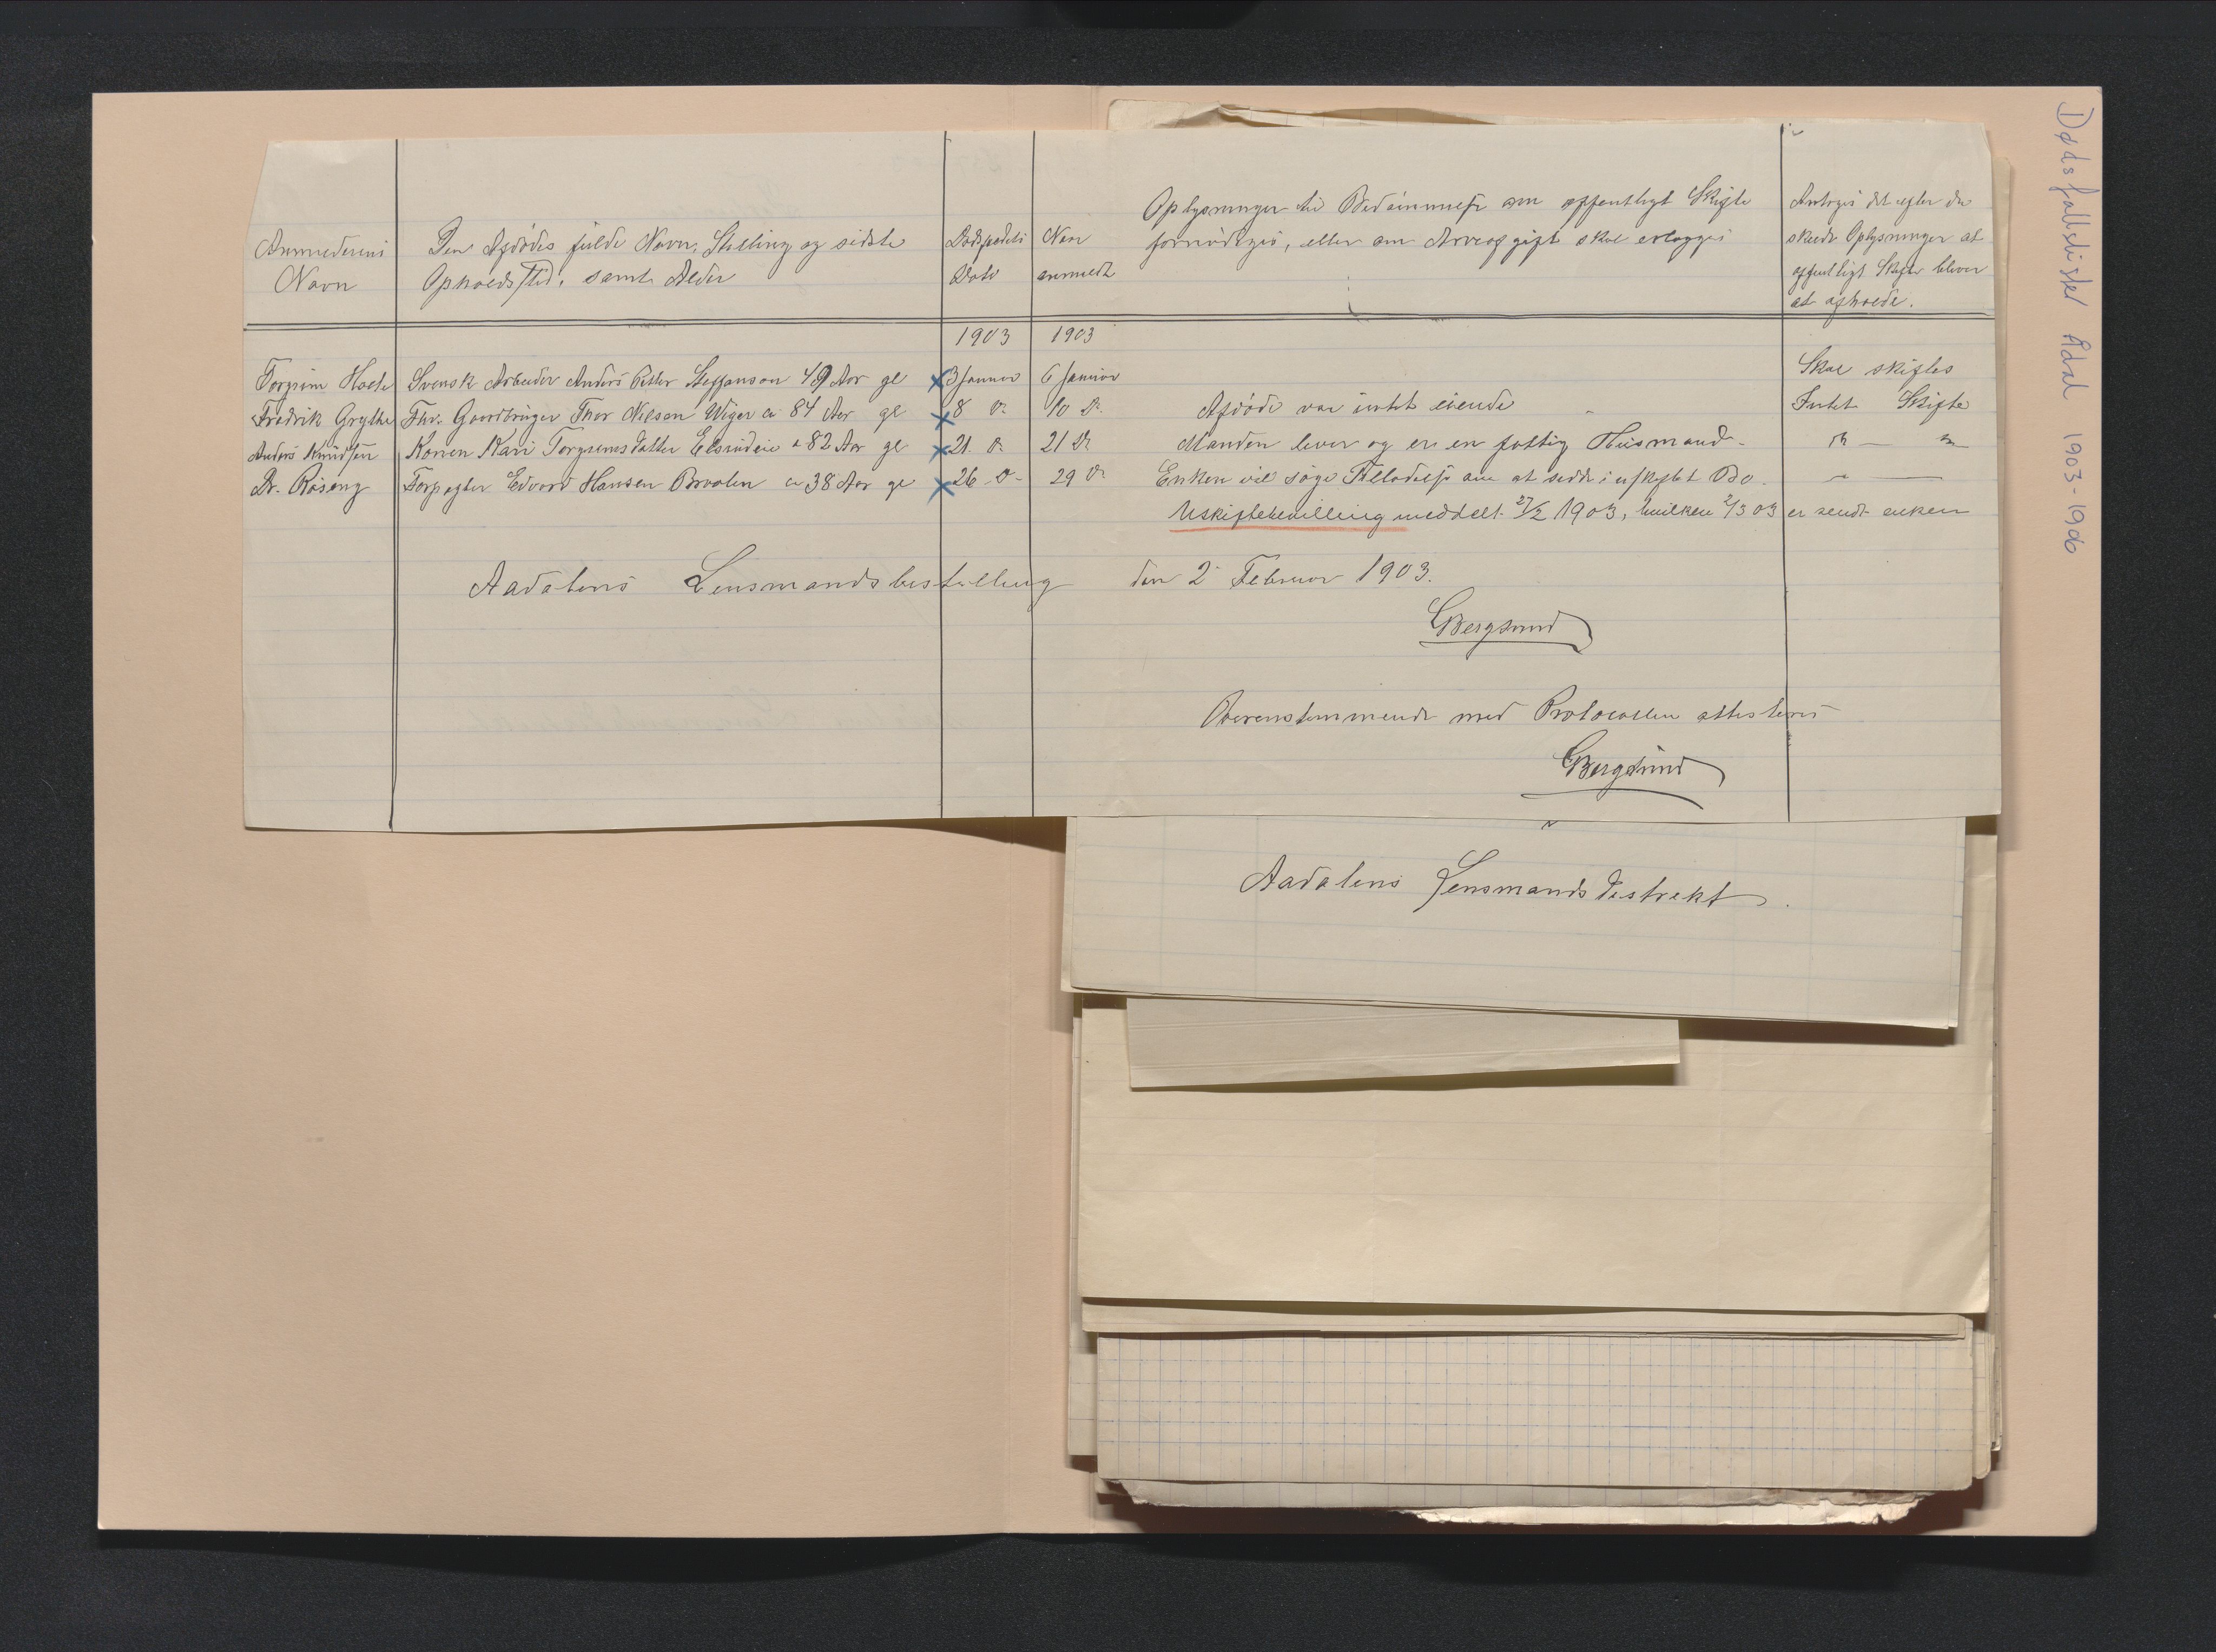 Anmelderens
Navn
Den Afdødes fulde Navn, Stilling og sidste
Opholdssted, samt Alder
Dødsfaldets
Dato
Naar
anmeldt
Oplysninger til Bedømmelse om offentligt Skifte
fornødiges, eller om Arveafgift skal erlægges
Antages det efter de
skeede Oplysninger at
offentligt Skifte bliver
at afholde.
1903 1903
Torgrim Hoele Svensk Arbeider Anders Petter Steffanson 49 Aar gl 3 Januar 6 Januar Skal skiftes
Fredrik Grythe Fhv. Gaardbruger Thor Nilsen Wiger ca 84 Aar gl 8 D. 10 D. Afdøde var intet eiende Intet Skifte
Anders Knudsen Konen Kari Torgrimsdatter Elsrudeie 82 Aar gl 21. D. 21 D. Manden lever og er en fattig Husmand
Dr. Røseng Forpagter Edvard Hansen Braalen ca 38 Aar gl 26 D. 29 D. Enken vil søge Tilladelse om at sidde i uskiftet Bo.
Uskiftebevilling meddelt 27/2 1903, hvilken 2/3 03 er sendt enken
Aadalens Lensmandsbestilling den 2 Februar 1903.
GBergsund
Overensstemmende med Protocollen attesteres
GBergsund
Aadalens Lensmandsdistrekt.
Dødsfallslister Ådal 1903-1906